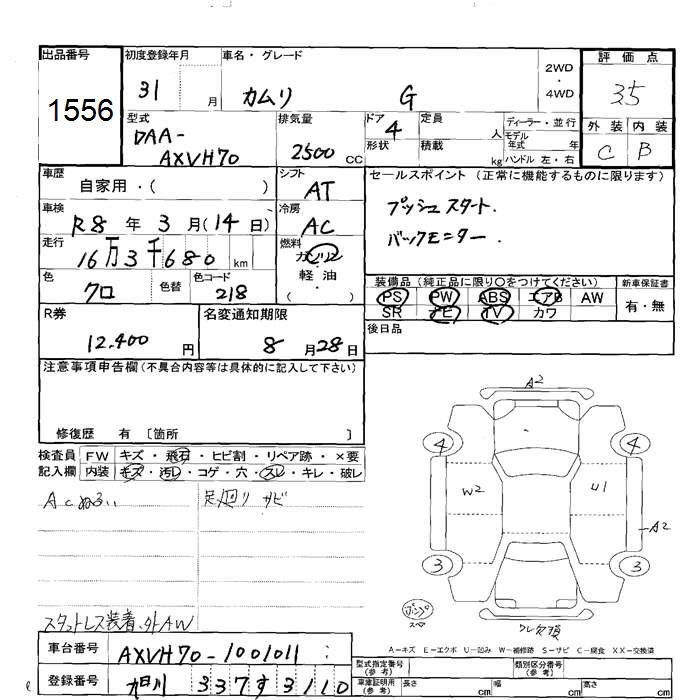 出品番号
1556
初度登録年月
31 月
車名・グレード
カムリ G
2WD
・
4WD
評価点
3.5
外装 内装
C B
型式
DAA-
AXVH70
排気量
2500 CC
ドア 4
形状
定員 人
積載 kg
ディーラー・並行
モデル年式 年
ハンドル 左・右
車歴
自家用・( )
シフト
AT
セールスポイント(正常に機能するものに限ります)
プッシュスタート.
バックモニター.
車検
R8 年 3 月(14日)
冷房
AC
走行
16万3千680 km
燃料
ガソリン
軽油
( ・ )
色
クロ
色替
色コード
218
装備品(純正品に限り○をつけてください)
PS PW ABS エアB AW
SR ナビ TV カワ
新車保証書
有・無
後日品
R券
12.400 円
名変通知期限
8 月 28 日
注意事項申告欄(不具合内容等は具体的に記入して下さい)
修復歴 有 〔箇所 〕
検査員
記入欄
FW キズ・飛石・ヒビ割・リペア跡・×要
内装 キズ・汚レ・コゲ・穴・スレ・キレ・破レ
Acぬるい
足廻りサビ
スタットレス装着、外AW
A2
4 4
W2 U1
A2
3 3
スペア
A-キズ E-エクボ U-凹み W-補修跡 S-サビ C-腐食 XX-交換済
車台番号
AXVH70-1001011
登録番号
旭川 337す3110
型式指定番号
(参考)
類別区分番号
(参考)
車庫証明用
(参考)
長さ cm 幅 cm 高さ cm